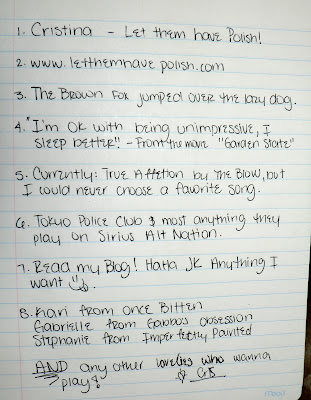 1. Cristina - Let them have Polish!
2. www.letthemhavepolish.com
3. The Brown Fox jumped over the lazy dog.
4. "I'm OK with being unimpressive, I
sleep better". - From the movie "Garden State"
5. Currently: True Affection by The Blow, but
I could never choose a favorite song.
6. Tokyo Police Club & most anything they
play on Sirius Alt Nation.
7. Read my Blog! Haha JK Anything I
want
8. Kari from Once Bitten
Gabrielle from Gabbys Obsession
Stephanie from Imperfectly Painted
AND any other lovelies who wanna
play!